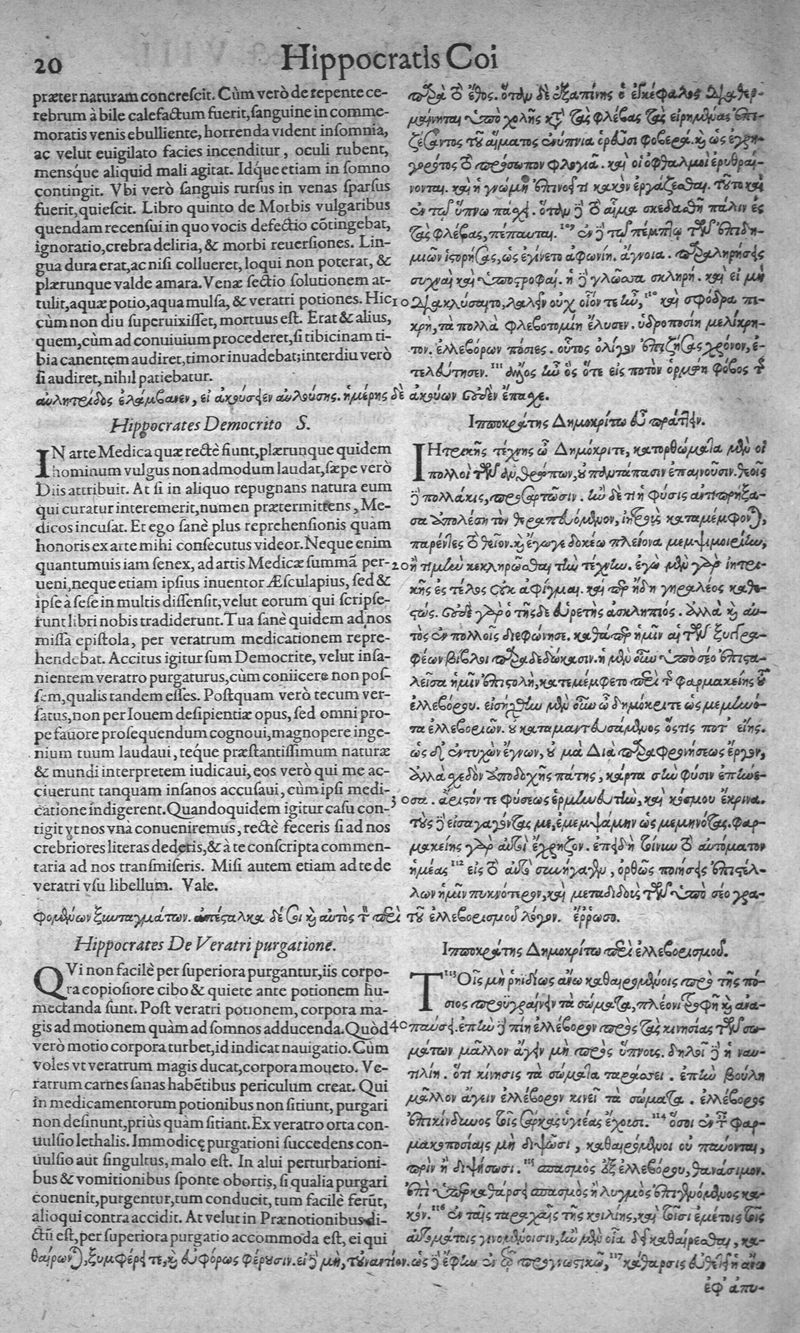 20 Hippocratis Coi
præter naturam concrescit. Cùm verò de repente ce-
rebrum à bile calefactum fuerit, sanguine in comme-
moratis venis ebulliente, horrenda vident insomnia,
ac velut euigilato facies incenditur, oculi rubent,
mensque aliquid mali agitat. Idque etiam in somno
contingit. Vbi verò sanguis rursus in venas sparsus
fuerit, quiescit. Libro quinto de Morbis vulgaribus
quendam recensui in quo vocis defectio cōtingebat,
ignoratio, crebra deliria, & morbi reuersiones. Lin-
gua dura erat, ac nisi collueret, loqui non poterat, &
plærunque valde amara. Venæ sectio solutionem at-
tulit, aquæ potio, aqua mulsa, & veratri potiones. Hic
cùm non diu superuixisset, mortuus est. Erat & alius,
quem, cùm ad conuiuium procederet, si tibicinam ti-
bia canentem audiret, timor inuadebat; interdiu verò
si audiret, nihil patiebatur.
παρὰ τὸ ἔθος. ὅταν δὲ ἐξαπίνης ὁ ἐγκέφαλος διαθερ-
μαίνηται ὑπὸ χολῆς κατὰ τὰς φλέβας τὰς εἰρημένας ἐπι-
ζέσαντος τοῦ αἵματος ἐνύπνια ὁρῶσι φοβερά. καὶ ὡς ἐγρη-
γορότος τὸ πρόσωπον φλογιᾷ. καὶ οἱ ὀφθαλμοὶ ἐρυθραί-
νονται. καὶ ἡ γνώμη ἐπινοεῖ τι κακὸν ἐργάζεσθαι. τοῦτο καὶ
ἐν τῷ ὕπνῳ πάσχει. ὅταν δὲ τὸ αἷμα σκεδασθῇ πάλιν ἐς
τὰς φλέβας, πέπαυται. 109 ἐν δὲ τῷ πέμπτῳ τῶν ἐπιδη-
μιῶν ἱστόρησας, ὡς ἐγίνετο ἀφωνίη, ἄγνοια. παραληρήσεις
συχναὶ καὶ ὑποστροφαί. ἡ δὲ γλῶσσα σκληρή. καὶ εἰ μὴ
10 διακλύσαιτο, λαλεῖν οὐχ οἷόν τε ἦν, 110 καὶ σφόδρα πι-
κρή, τὰ πολλὰ φλεβοτομίη ἔλυσεν. ὑδροποσίη μελίκρη-
τον. ἐλλεβόρων πόσιες. οὗτος ὀλίγον ἐπιζήσας χρόνον, ἐ-
τελεύτησεν. 111 ἄλλος ἦν ὃς ὅτε εἰς ποτὸν ὁρμᾴη φόβος τῆς
αὐλητρίδος ἐλάμβανεν, εἰ ἀκούσειεν αὐλούσης. ἡμέρης δὲ ἀκούων οὐδὲν ἔπασχε.
Hippocrates Democrito S.
IN arte Medica quæ rectè fiunt, plærunque quidem
hominum vulgus non admodum laudat, sæpe verò
Diis attribuit. At si in aliquo repugnans natura eum
qui curatur interemerit, numen prætermittens, Me-
dicos incusat. Et ego sanè plus reprehensionis quàm
honoris ex arte mihi consecutus videor. Neque enim
quantumuis iam senex, ad artis Medicæ summā per-
ueni, neque etiam ipsius inuentor Æsculapius, sed &
ipse à sese in multis dissensit, velut eorum qui scripse-
runt libri nobis tradiderunt. Tua sanè quidem ad nos
missa epistola, per veratrum medicationem repre-
hendebat. Accitus igitur sum Democrite, velut insa-
nientem veratro purgaturus, cùm coniicere non pos-
sem, qualis tandem esses. Postquam verò tecum ver-
satus, non per Iouem desipientiæ opus, sed omni pro-
pe fauore prosequendum cognoui, magnopere inge-
nium tuum laudaui, teque præstantissimum naturæ
& mundi interpretem iudicaui, eos verò qui me ac-
ciuerunt tanquam insanos accusaui, cùm ipsi medi-
catione indigerent. Quandoquidem igitur casu con-
tigit vt nos vnà conueniremus, rectè feceris si ad nos
crebriores literas dederis, & à te conscripta commen-
taria ad nos transmiseris. Misi autem etiam ad te de
veratri vsu libellum. Vale.
Ἱπποκράτης Δημοκρίτῳ εὖ πράττειν.
ΙΗτρικῆς τέχνης ὦ Δημόκριτε, κατορθώματα μὲν οἱ
πολλοὶ τῶν ἀνθρώπων, οὐ πάμπαν ἐπαινοῦσιν. θεοῖς
δὲ πολλάκις προσάπτουσιν. ἢν δέ τι ἡ φύσις ἀντιπρήξα-
σα ἀπολέσῃ τὸν θεραπευόμενον, ἰητροὺς καταμέμφονται,
παρέντες τὸ θεῖον. καὶ ἔγωγε δοκέω πλείονα μεμψιμοιρίην,
20 ἢ τιμὴν κεκληρῶσθαι τὴν τέχνην. ἐγὼ μὲν γὰρ ἰητρι-
κῆς ἐς τέλος οὐκ ἀφίγμαι. καίπερ ἤδη γηραλέος καθε-
στώς. οὐδὲ γὰρ ὁ τῆσδε εὑρετὴς ἀσκληπιός. ἀλλὰ καὶ αὐ-
τὸς ἐν πολλοῖς διεφώνησε. καθάπερ ἡμῖν αἱ τῶν ξυγγρα-
φέων βίβλοι παραδεδώκασιν. ἡ μὲν οὖν ὑπὸ σέο ἐπιστα-
λεῖσα ἡμῖν ἐπιστολή, κατεμέμφετο περὶ τῆς φαρμακείης τοῦ
ἐλλεβόρου. εἰσήχθην μὲν οὖν ὦ δημόκριτε ὡς μεμηνό-
τα ἐλλεβοριῶν. οὐ καταμαντευσάμενος ὅστις ποτ' εἴης.
ὡς δὲ ἐντυχὼν ἔγνων, οὐ μὰ Δία παραφρονήσεως ἔργον,
ἀλλὰ σχεδὸν ἀποδοχῆς πάσης, κάρτα σὴν φύσιν ἐπῄνε-
30 σα. ἄριστόν τε φύσεως ἑρμηνευτὴν, καὶ κόσμου ἔκρινα.
τοὺς δὲ εἰσαγαγόντας με, ἐμεμψάμην ὡς μεμηνότας. φαρ-
μακείης γὰρ αὐτοὶ ἔχρῃζον. ἐπειδὴ τοίνυν τὸ αὐτόματον
ἡμέας 112 εἰς τὸ αὐτὸ συνήγαγεν, ὀρθῶς ποιήσεις ἐπιστέλ-
λων ἡμῖν πυκνότερον, καὶ μεταδιδοὺς τῶν ὑπὸ σέο γρα-
φομένων ξυνταγμάτων. ἀπέσταλκα δέ σοι καὶ αὐτὸς τὸν περὶ τοῦ ἐλλεβορισμοῦ λόγον. ἔρρωσο.
Hippocrates De Veratri purgatione.
QVi non facilè per superiora purgantur, iis corpo-
ra copiosiore cibo & quiete ante potionem hu-
mectanda sunt. Post veratri potionem, corpora ma-
gis ad motionem quàm ad somnos adducenda. Quòd
verò motio corpora turbet, id indicat nauigatio. Cùm
voles vt veratrum magis ducat, corpora moueto. Ve-
ratrum carnes sanas habētibus periculum creat. Qui
in medicamentorum potionibus non sitiunt, purgari
non desinunt, priùs quàm sitiant. Ex veratro orta con-
uulsio lethalis. Immodicę purgationi succedens con-
uulsio aut singultus, malo est. In alui perturbationi-
bus & vomitionibus sponte obortis, si qualia purgari
conuenit, purgentur, tum conducit, tum facilè ferūt,
alioqui contra accidit. At velut in Prænotionibus di-
ctū est, per superiora purgatio accommoda est, ei qui
Ἱπποκράτης Δημοκρίτῳ περὶ ἐλλεβορισμοῦ.
113 ΤΟῖς μὴ ῥηϊδίως ἄνω καθαιρομένοις πρὸ τῆς πό-
σιος προϋγραίνειν τὰ σώματα, πλέονι τροφῇ καὶ ἀνα-
40 παύσει. ἐπὴν δὲ πίῃ ἐλλέβορον πρὸς τὰς κινήσιας τῶν σω-
μάτων μᾶλλον ἄγειν μὴ πρὸς ὕπνους. δηλοῖ δὲ ἡ ναυ-
τιλίη. ὅτι κίνησις τὰ σώματα ταράσσει. ἐπὴν βούλῃ
μᾶλλον ἄγειν ἐλλέβορον κινεῖ τὰ σώματα. ἐλλέβορος
ἐπικίνδυνος τοῖς σάρκας ὑγιέας ἔχουσι. 114 ὅσοι ἐν τῇσι φαρ-
μακοποσίαις μὴ διψῶσι, καθαιρόμενοι οὐ παύονται,
πρὶν ἢ διψήσωσι. 115 σπασμὸς ἐξ ἐλλεβόρου, θανάσιμον.
ἐπὶ ὑπερκαθάρσει σπασμὸς ἢ λυγμὸς ἐπιγενόμενος κα-
κόν. 116 ἐν ταῖς ταραχαῖς τῆς κοιλίης, καὶ τοῖσι ἐμέτοις τοῖς
αὐτομάτοις γινομένοισιν, ἢν μὲν οἷα δεῖ καθαίρεσθαι, κα-
θαίρωνται, ξυμφέρει τε, καὶ εὐφόρως φέρουσιν. εἰ δὲ μὴ, τοὐναντίον. ὡς δὲ ἔφην ἐν τῷ προγνωστικῷ, 117 κάθαρσις εὔθετος ἡ ἄνω
ἐφ' ἀπυ-